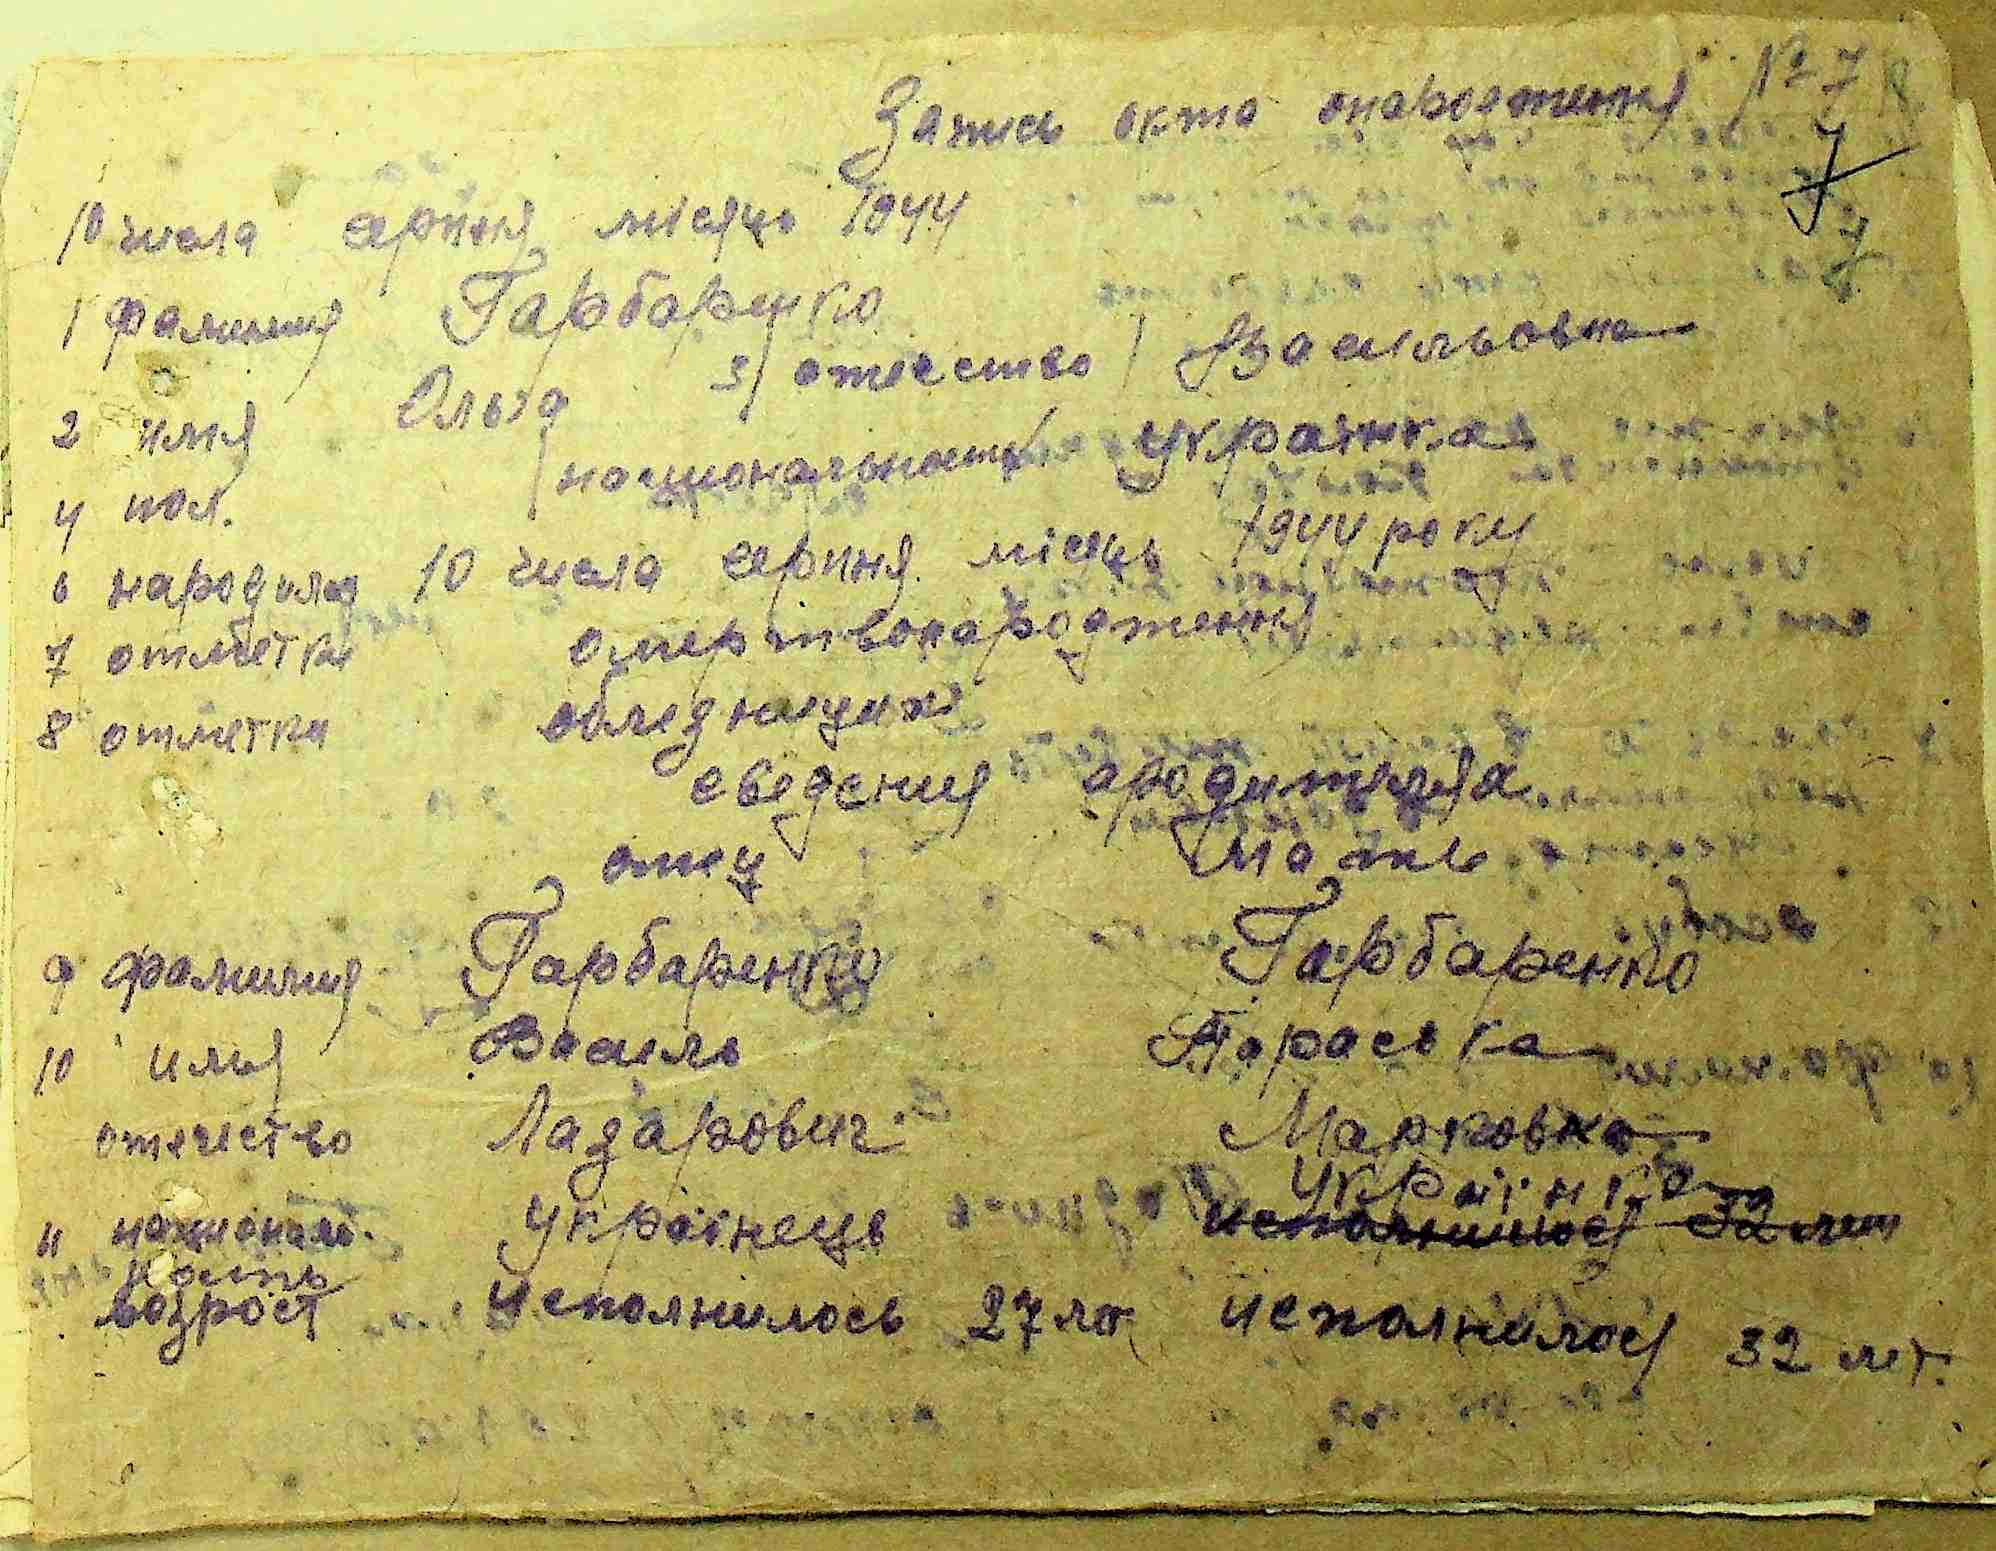 Запись акта онарожжения № 7
7
7
10 числа серпня місяць 1944
1 фамилия Гарбаренко
2 имя Ольга 3) отчество Васильовна
4 пол. национальность Українка
6 народилась 10 числа серпня місяць 1944 року
7 отметка омертвонародженні
8 отметка облезнецих
сведения ародителях
отец Мать
9 фамилия Гарбаренко Гарбаренко
10 имя Василь Параська
отечество Лазарович Марковна
11 националь- українець українка
ность исполнилося 32 лет
возрост исполнилось 27 ле исполнилося 32 лет.